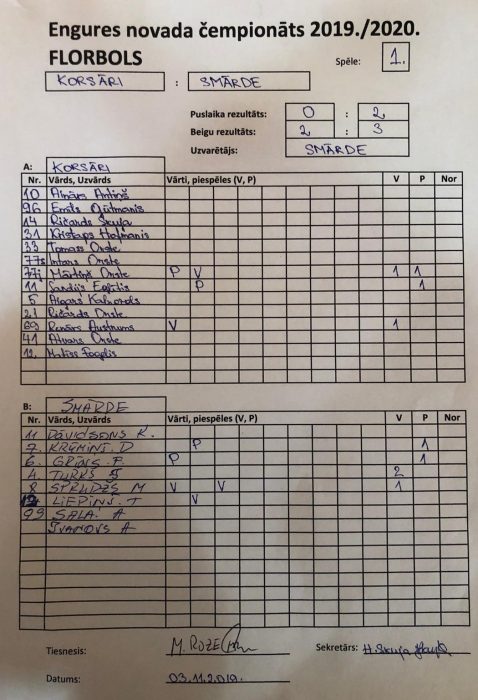 Engures novada čempionāts 2019./2020.
FLORBOLS
Spēle: 1.
KORSĀRI : SMĀRDE
Puslaika rezultāts: 0 : 2
Beigu rezultāts: 2 : 3
Uzvarētājs: SMĀRDE
A: KORSĀRI
Nr. Vārds, Uzvārds Vārti, piespēles (V, P) V P Nor
10 Ainārs
96
14 Ričards Skuja
31 Kristaps Hofmanis
33 Tomass Onste
Intars Onste
77j Mārtiņš Onste P V 1 1
11 Sandijs P 1
5 Aigars
21 Ričārds Onste
69 Renārs Austrums V 1
41 Atvars Onste
12.
B: SMĀRDE
Nr. Vārds, Uzvārds Vārti, piespēles (V, P) V P Nor
11 DĀVIDSONS K.
7. KRŪMIŅI. D P 1
6. GRĪNS. P. P 1
4. TURKS 2
8 SPRUDŽS M V V 1
12 LIEPIŅŠ. T V
99 SALA. A
IVANOVS A
Tiesnesis: M. ROZE Sekretārs: H. Skuja
Datums: 03.11.2019.